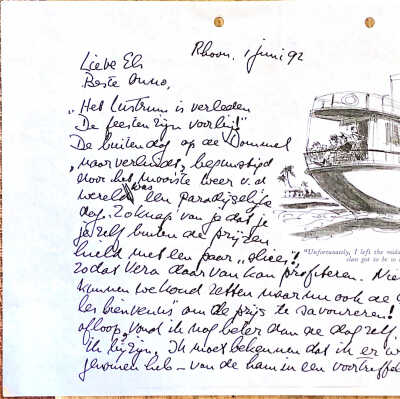 Rhoon, 1 juni 92
Lieve Els
Beste Onno,
"Het Lustrum is verleden
De feesten zijn voorbij"
De buitendag op de Dommel
, begunstigd
door het mooiste weer v.d
wereld was een paradijselijke
dag. Zo knap van je dat je
jezelf buiten de prijzen
hield met een paar "
zodat Vera daarvan kan profiteren. Nie
kunnen we koud zetten waar nu ook de
les bienvenus om de prijs te savoureren!
afloop, vond ik nog beter dan de dag zelf.
Ik bijzijn. Ik moet bekennen dat ik er w
genomen heb - van de ham in een voortreffel
"Unfortunately, I left the
clan got to be